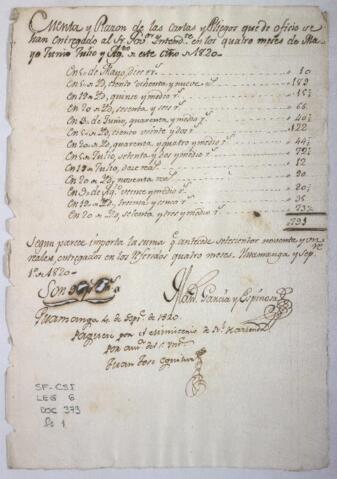 Cuenta y Razon de las cartas y Pliegos que de oficio se
han entregado al Sr. Gov.or Intend.te en los quatro meses de Ma
yo Junio Julio y Ag.to de este Año de 1820
En 5 de Mayo, diez r.s 10
En 5 de Do, ciento ochenta y nueve r.s 189
En 19 Do, quince y medio r.s 15½
En 20 Do, sesenta y seis r.s 66
En de Junio, quarenta y medio r.s 40½
En 5 de Do, ciento veinte y dos r.s 122
En 20 Do, quarenta y quatro y medio r.s 44½
En 5 Julio, setenta y dos y medio r.s 72½
En 19 Julio, doce reales 12
En 20 Do, noventa r.s 90
En de Ag.to veinte y medio r.s 20½
En Do, treinta y cinco r.s 35
En 20 Do, setenta y tres y medio r.s 73½
791
Segun parece importa la suma q.e antecede setecientos noventa y un
reales, entregados en los referidos quatro meses. Huamanga y Sep.
1o de 1820
Son
Man.l Garcia y Espinosa
Huamanga de Sep.e de 1820
Paguese por el Ministerio de R.l Hacienda
Juan Jose
SF-CSI
LEG 6
DOC 373
fs 1